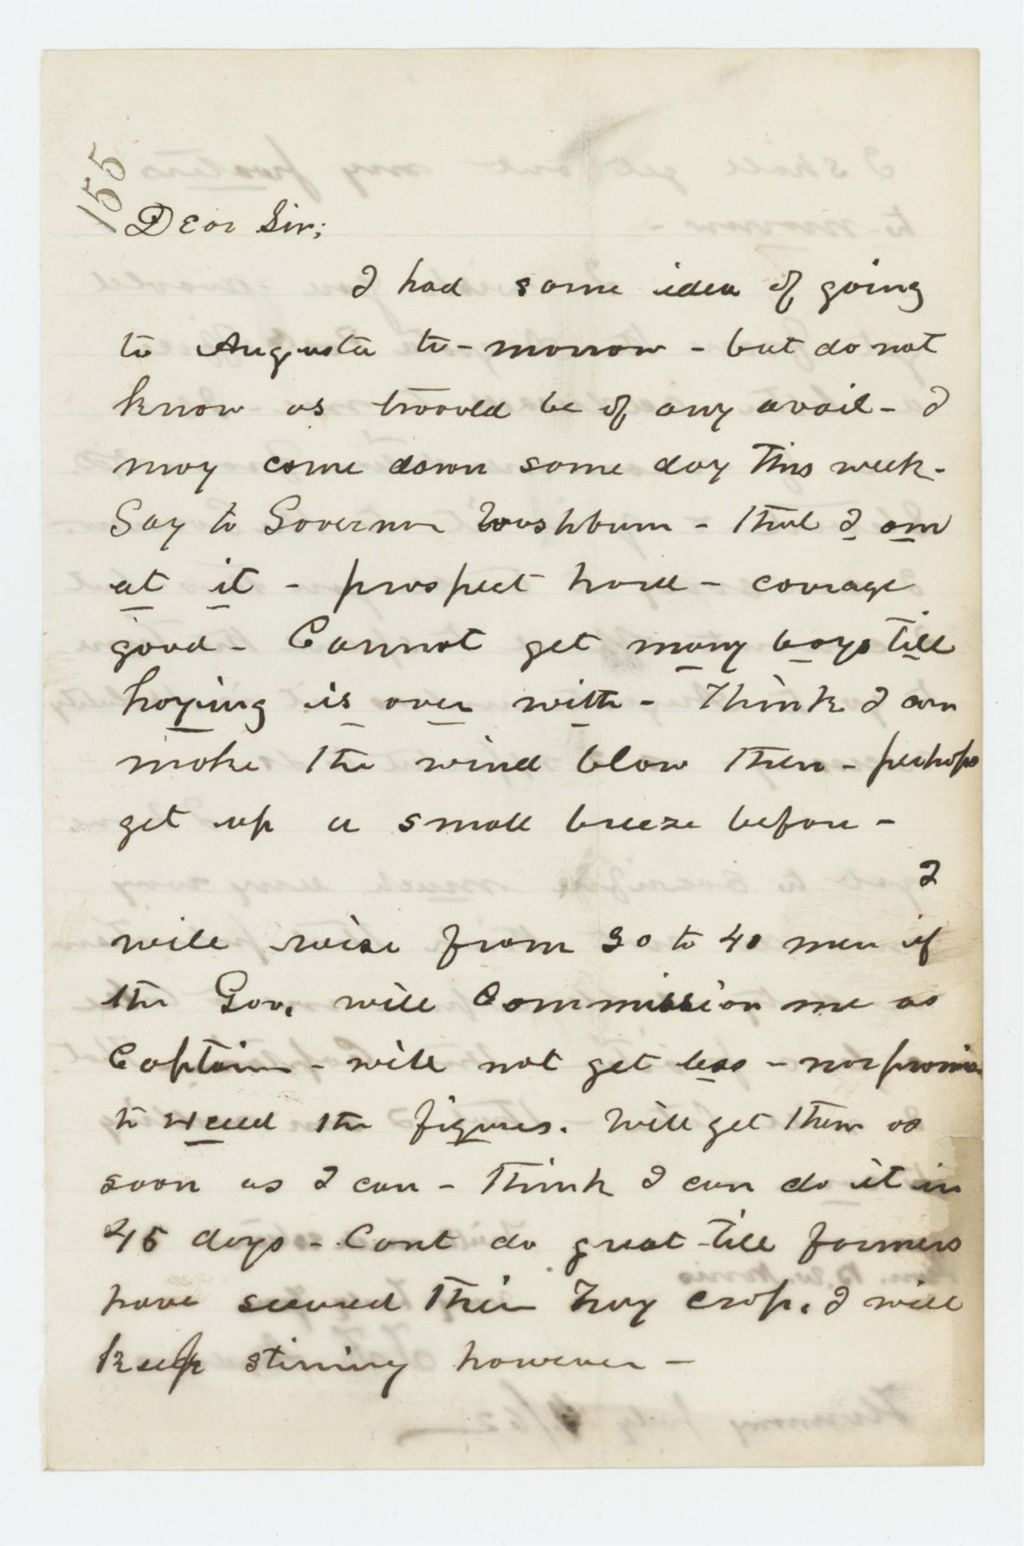 155
Dear Sir;
I had some idea of going
to Augusta to-morrow - but do not
know as twould be of any avail - I
may come down some day this week -
Say to Governor Washburn - that I am
at it - prospect hard - courage
good - Cannot get many boys till
haying is over with - Think I can
make the wind blow then - perhaps
get up a small breeze before -
I
will raise from 30 to 40 men if
the Gov. will Commission me as
Captain - will not get less - nor promise
to exceed the figures. Will get them as
soon as I can - Think I can do it in
45 days - Cant do great till farmers
have secured their hay crop. I will
keep stirring however -